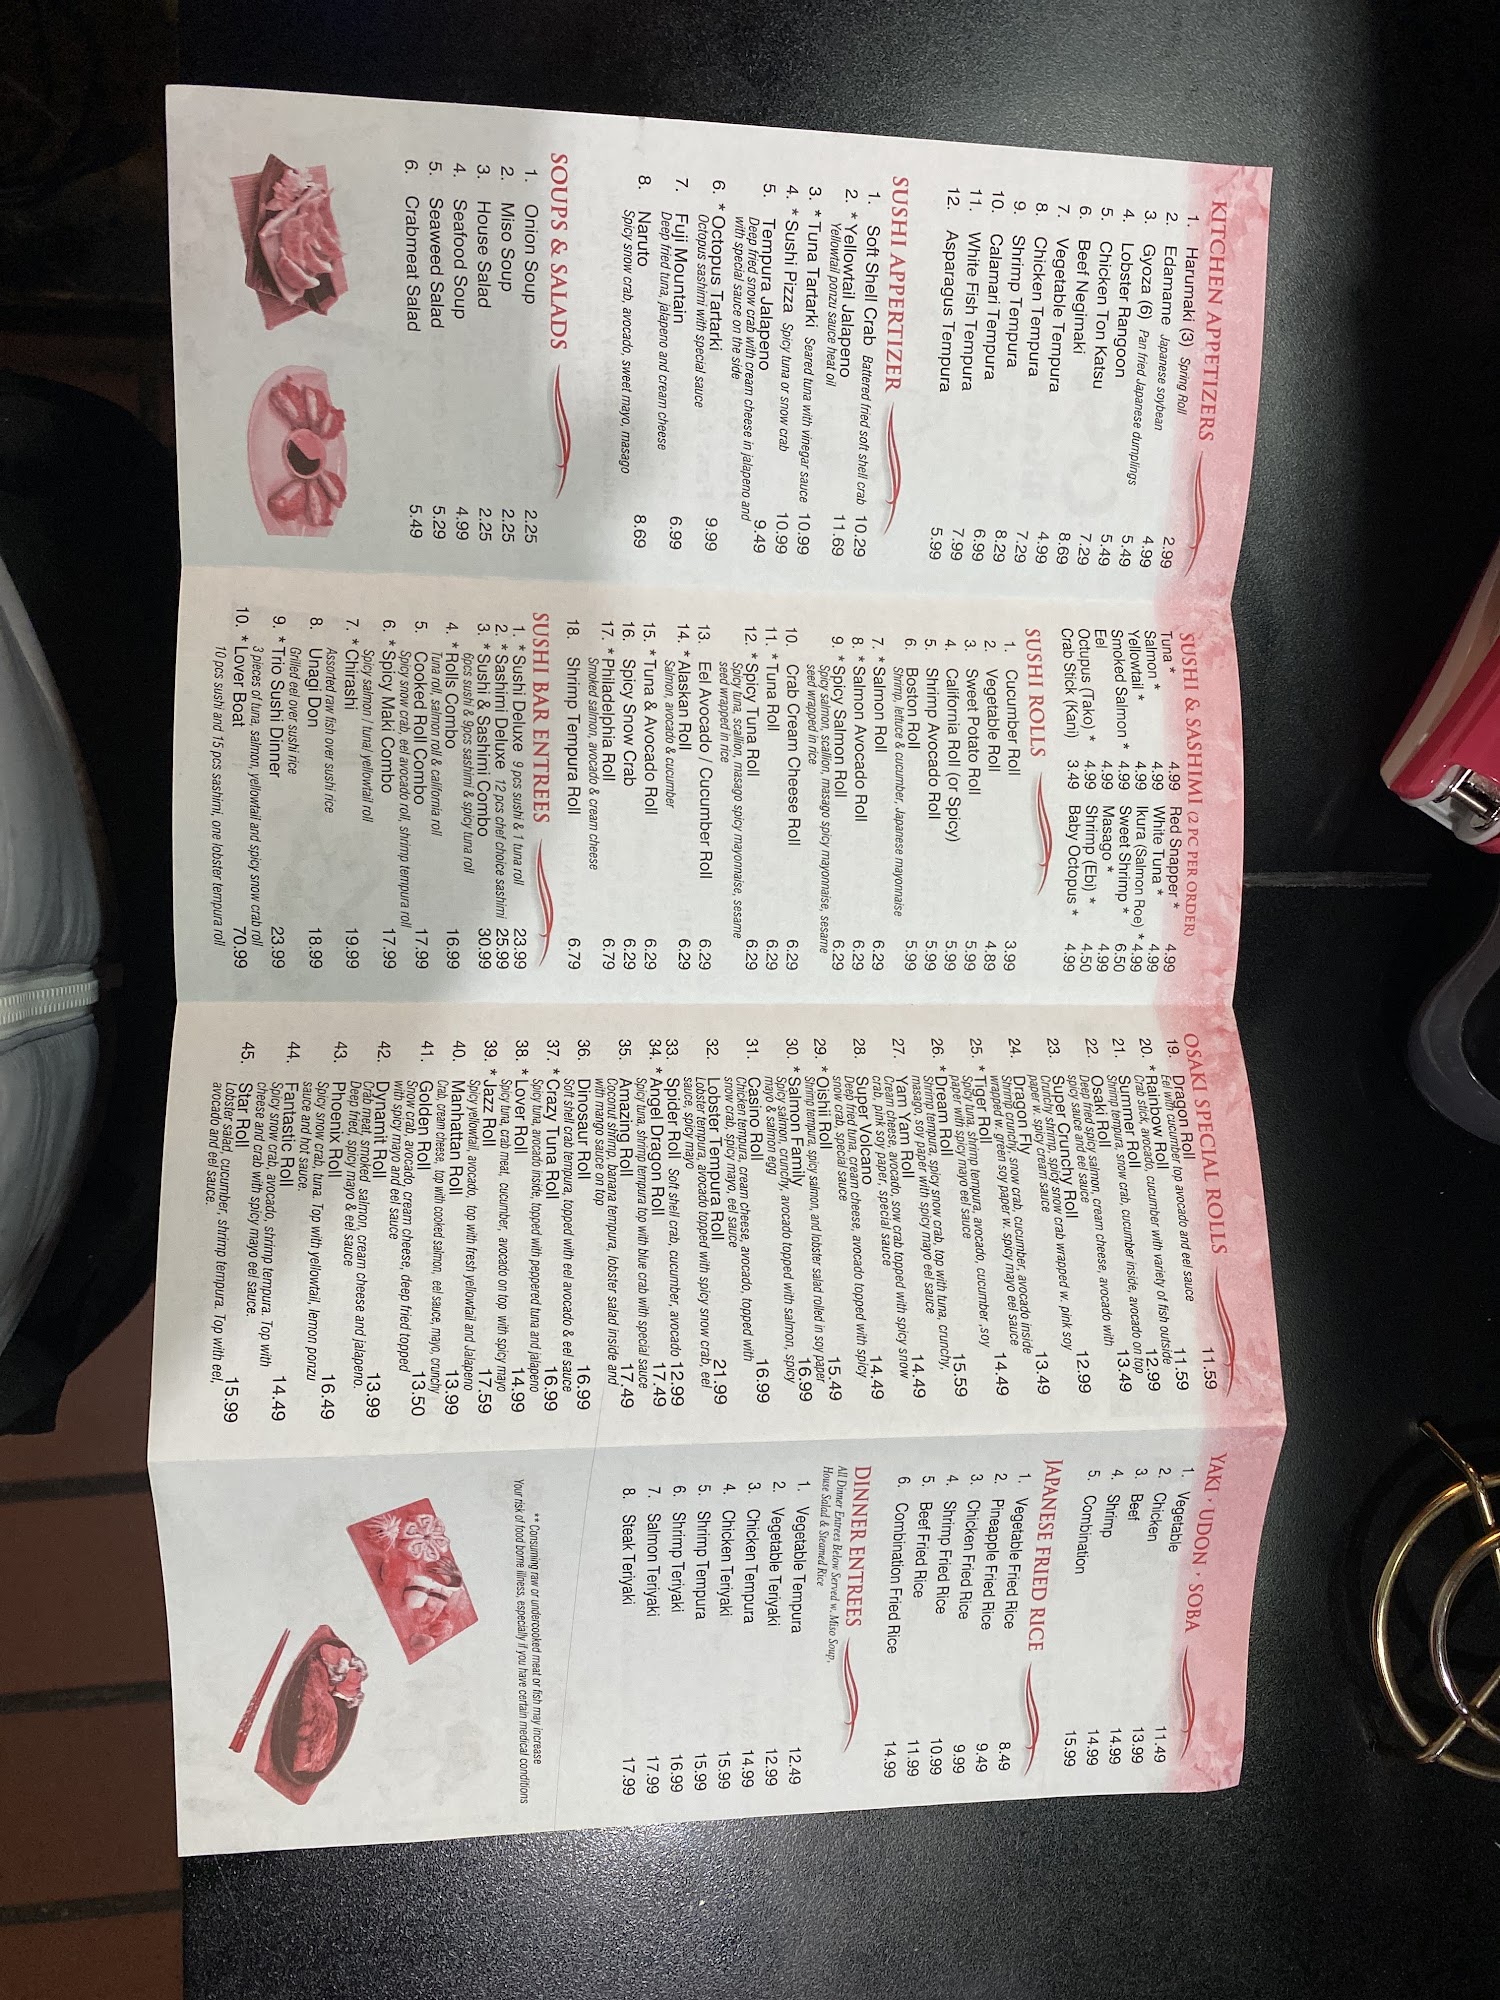 KITCHEN APPETIZERS
1. Harumaki (3) Spring Roll 2.99
2. Edamame Japanese soybean 4.99
3. Gyoza (6) Pan fried Japanese dumplings 5.49
4. Lobster Rangoon 5.49
5. Chicken Ton Katsu 7.29
6. Beef Negimaki 8.69
7. Vegetable Tempura 4.99
8. Chicken Tempura 7.29
9. Shrimp Tempura 8.29
10. Calamari Tempura 6.99
11. White Fish Tempura 7.99
12. Asparagus Tempura 5.99
SUSHI APPERTIZER
1. Soft Shell Crab Battered fried soft shell crab 10.29
2. * Yellowtail Jalapeno 11.69
Yellowtail ponzu sauce heat oil
3. * Tuna Tartarki Seared tuna with vinegar sauce 10.99
4. * Sushi Pizza Spicy tuna or snow crab 10.99
5. Tempura Jalapeno 9.49
Deep fried snow crab with cream cheese in jalapeno and
with special sauce on the side
6. * Octopus Tartarki 9.99
Octopus sashimi with special sauce
7. Fuji Mountain 6.99
Deep fried tuna, jalapeno and cream cheese
8. Naruto 8.69
Spicy snow crab, avocado, sweet mayo, masago
SOUPS & SALADS
1. Onion Soup 2.25
2. Miso Soup 2.25
3. House Salad 2.25
4. Seafood Soup 4.99
5. Seaweed Salad 5.29
6. Crabmeat Salad 5.49
SUSHI & SASHIMI (2 PC PER ORDER)
Tuna * 4.99 Red Snapper * 4.99
Salmon * 4.99 White Tuna * 4.99
Yellowtail * 4.99 Ikura (Salmon Roe) * 4.99
Smoked Salmon * 4.99 Sweet Shrimp * 6.50
Eel 4.99 Masago * 4.99
Octupus (Tako) * 4.99 Shrimp (Ebi) * 4.50
Crab Stick (Kani) 3.49 Baby Octopus * 4.99
SUSHI ROLLS
1. Cucumber Roll 3.99
2. Vegetable Roll 4.89
3. Sweet Potato Roll 5.99
4. California Roll (or Spicy) 5.99
5. Shrimp Avocado Roll 5.99
6. Boston Roll 5.99
Shrimp, lettuce & cucumber, Japanese mayonnaise
7. * Salmon Roll 6.29
8. * Salmon Avocado Roll 6.29
9. * Spicy Salmon Roll 6.29
Spicy salmon, scallion, masago spicy mayonnaise, sesame
seed wrapped in rice
10. Crab Cream Cheese Roll 6.29
11. * Tuna Roll 6.29
12. * Spicy Tuna Roll 6.29
Spicy tuna, scallion, masago spicy mayonnaise, sesame
seed wrapped in rice
13. Eel Avocado / Cucumber Roll 6.29
14. * Alaskan Roll 6.29
Salmon, avocado & cucumber
15. * Tuna & Avocado Roll 6.29
16. Spicy Snow Crab 6.29
17. * Philadelphia Roll 6.79
Smoked salmon, avocado & cream cheese
18. Shrimp Tempura Roll 6.79
SUSHI BAR ENTREES
1. * Sushi Deluxe 9 pcs sushi & 1 tuna roll 23.99
2. * Sashimi Deluxe 12 pcs chef choice sashimi 25.99
3. * Sushi & Sashimi Combo 30.99
6pcs sushi & 9pcs sashimi & spicy tuna roll
4. * Rolls Combo 16.99
Tuna roll, salmon roll & california roll
5. Cooked Roll Combo 17.99
Spicy snow crab, eel avocado roll, shrimp tempura roll
6. * Spicy Maki Combo 17.99
Spicy salmon / tuna/ yellowtail roll
7. * Chirashi 19.99
Assorted raw fish over sushi rice
8. Unagi Don 18.99
Grilled eel over sushi rice
9. * Trio Sushi Dinner 23.99
3 pieces of tuna, salmon, yellowtail and spicy snow crab roll
10. * Lover Boat 70.99
10 pcs sushi and 15 pcs sashimi, one lobster tempura roll
OSAKI SPECIAL ROLLS
19. Dragon Roll 11.59
Eel with cucumber top avocado and eel sauce
20. * Rainbow Roll 11.59
Crab stick, avocado, cucumber with variety of fish outside
21. Summer Roll 12.99
Shrimp tempura, snow crab, cucumber inside, avocado on top
22. Osaki Roll 13.49
Deep fried spicy salmon, cream cheese, avocado with
spicy sauce and eel sauce
23. Super Crunchy Roll 12.99
Crunchy shrimp, spicy snow crab wrapped w. pink soy
paper w. spicy cream sauce
24. Dragon Fly 13.49
Shrimp crunchy, snow crab, cucumber, avocado inside
wrapped w. green soy paper w. spicy mayo eel sauce
25. * Tiger Roll 14.49
Spicy tuna, shrimp tempura, avocado, cucumber ,soy
paper with spicy mayo eel sauce
26. * Dream Roll 15.59
Shrimp tempura, spicy snow crab, top with tuna, crunchy,
masago, soy paper with spicy mayo eel sauce
27. Yam Yam Roll 14.49
Cream cheese, avocado, sow crab topped with spicy snow
crab, pink soy paper, special sauce
28. Super Volcano 14.49
Deep fried tuna, cream cheese, avocado topped with spicy
snow crab, special sauce
29. * Oishii Roll 15.49
Shrimp tempura, spicy salmon, and lobster salad rolled in soy paper
30. * Salmon Family 16.99
Spicy salmon, crunchy, avocado topped with salmon, spicy
mayo & salmon egg
31. Casino Roll 16.99
Chicken tempura, cream cheese, avocado, topped with
snow crab, spicy mayo, eel sauce
32. Lobster Tempura Roll 21.99
Lobster tempura, avocado topped with spicy snow crab, eel
sauce, spicy mayo
33. Spider Roll Soft shell crab, cucumber, avocado 12.99
34. * Angel Dragon Roll 17.49
Spicy tuna, shrimp tempura top with blue crab with special sauce
35. Amazing Roll 17.49
Coconut shrimp, banana tempura, lobster salad inside and
with mango sauce on top
36. Dinosaur Roll 16.99
Soft shell crab tempura, topped with eel avocado & eel sauce
37. * Crazy Tuna Roll 16.99
Spicy tuna, avocado inside, topped with peppered tuna and jalapeno
38. * Lover Roll 14.99
Spicy tuna, crab meat, cucumber, avocado on top with spicy mayo
39. * Jazz Roll 17.59
Spicy yellowtail, avocado, top with fresh yellowtail and Jalapeno
40. Manhattan Roll 13.99
Crab, cream cheese, top with cooked salmon, eel sauce, mayo, crunchy
41. Golden Roll 13.50
Snow crab, avocado, cream cheese, deep fried topped
with spicy mayo and eel sauce
42. Dynamit Roll 13.99
Crab meat, smoked salmon, cream cheese and jalapeno.
Deep fried, spicy mayo & eel sauce
43. Phoenix Roll 16.49
Spicy snow crab, tuna. Top with yellowtail, lemon ponzu
sauce and hot sauce.
44. Fantastic Roll 14.49
Spicy snow crab, avocado, shrimp tempura. Top with
cheese and crab with spicy mayo eel sauce.
45. Star Roll 15.99
Lobster salad, cucumber, shrimp tempura. Top with eel,
avocado and eel sauce.
YAKI · UDON · SOBA
1. Vegetable 11.49
2. Chicken 13.99
3. Beef 14.99
4. Shrimp 14.99
5. Combination 15.99
JAPANESE FRIED RICE
1. Vegetable Fried Rice 8.49
2. Pineapple Fried Rice 9.49
3. Chicken Fried Rice 9.99
4. Shrimp Fried Rice 10.99
5. Beef Fried Rice 11.99
6. Combination Fried Rice 14.99
DINNER ENTREES
All Dinner Entrees Below Served w. Miso Soup,
House Salad & Steamed Rice
1. Vegetable Tempura 12.49
2. Vegetable Teriyaki 12.99
3. Chicken Tempura 14.99
4. Chicken Teriyaki 15.99
5. Shrimp Tempura 15.99
6. Shrimp Teriyaki 16.99
7. Salmon Teriyaki 17.99
8. Steak Teriyaki 17.99
** Consuming raw or undercooked meat or fish may increase
Your risk of food borne illness, especially if you have certain medical conditions